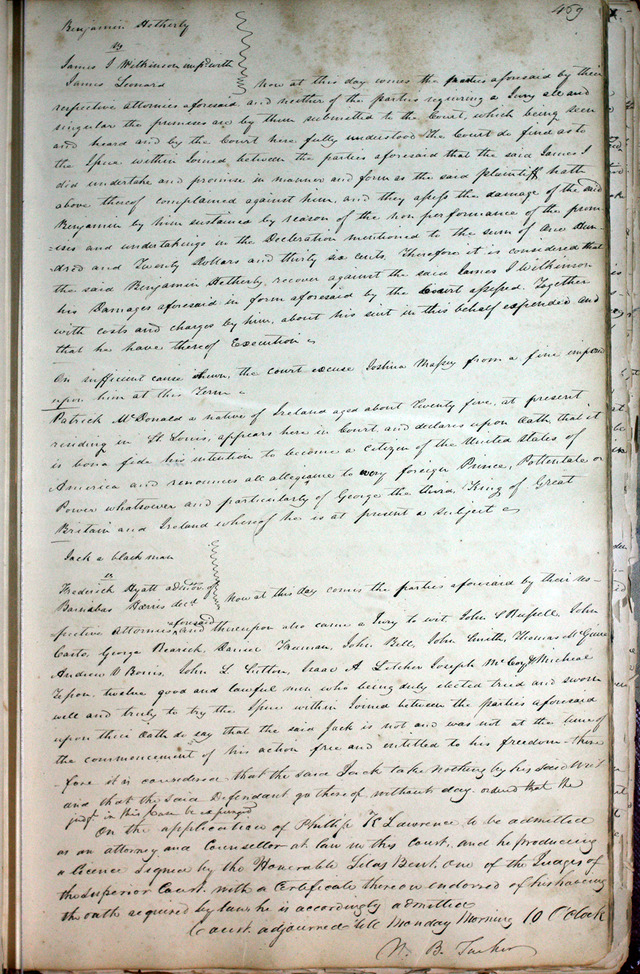 469
Benjamin Hetherly
vs
James J Wilkinson imp. with
James Leonard now at this day comes the parties aforesaid by their
respective attornies aforesaid, and neither of the parties requiring a Jury all and
singular the premises are by them submitted to the Court, which being seen
and heard and by the Court here fully understood the Court do find as to
the Issue within Joined between the parties aforesaid that the said James J
did undertake and promise in manner and form as the said plaintiff hath
above thereof complained against him, and they assess the damage of the said
Benjamin by him sustained by reason of the non performance of the prom
=ises and undertakings in the Decleration mentioned to the sum of One Hun-
dred and Twenty Dollars and thirty six cents. Therefore it is considered that
the said Benjamin Hetherly, recover against the said James J Wilkinson
his Damages aforesaid in form aforesaid by the Court assessed. Together
with costs and charges by him, about his suit in this behalf expended and
that he have thereof Execution
On sufficient cause shewn, the court excuse Joshua Massey from a fine
upon him at this Term
Patrick McDonald a native of Ireland aged about Twenty five, at present
residing in St Louis, appears here in Court and declares upon Oath that it
is bona fide his intention to become a citizen of the United States of
America and renounces all allegiance to every foreign Prince, Pottentate or
Power whatsoever and particularly of George the third, King of Great
Britain and Ireland whereof he is at present a subject
Jack a black man
vs
Frederick Hyatt admtor. of
Barnabas Harris decd. now at this day comes the parties aforesaid by their res-
pective Attornies aforesaid and thereupon also came a Jury to wit, John Russell, John
George Daniel Freeman, John Bell, John Smith, Thomas McGuire
Andrew John L Sutton, Isaac A Letcher Joseph McCoy & Micheal
twelve good and lawful men who being duly elected tried and sworn
well and truly to try the Issue within Joined between the parties aforesaid
upon their Oath do say that the said Jack is not and was not at the time of
the commencement of his action free and entitled to his freedom there
fore it is considered that the said Jack take nothing by his said Writ
and that the said Defendant go thereof without day. orderd that the
judgt. in this case be expunged
On the application of Phillip K Lawrence to be admitted
as an attorney and Counsellor at law in this court, and he producing
a licence signed by the Honerable Silas Bent, one of the Judges of
the Superior Court, with a Certificate thereon endorsed of his having
the oath required by law, he is accordingly admitted
Court adjourned till Monday Morning 10 O'Clock
N. B. Tucker